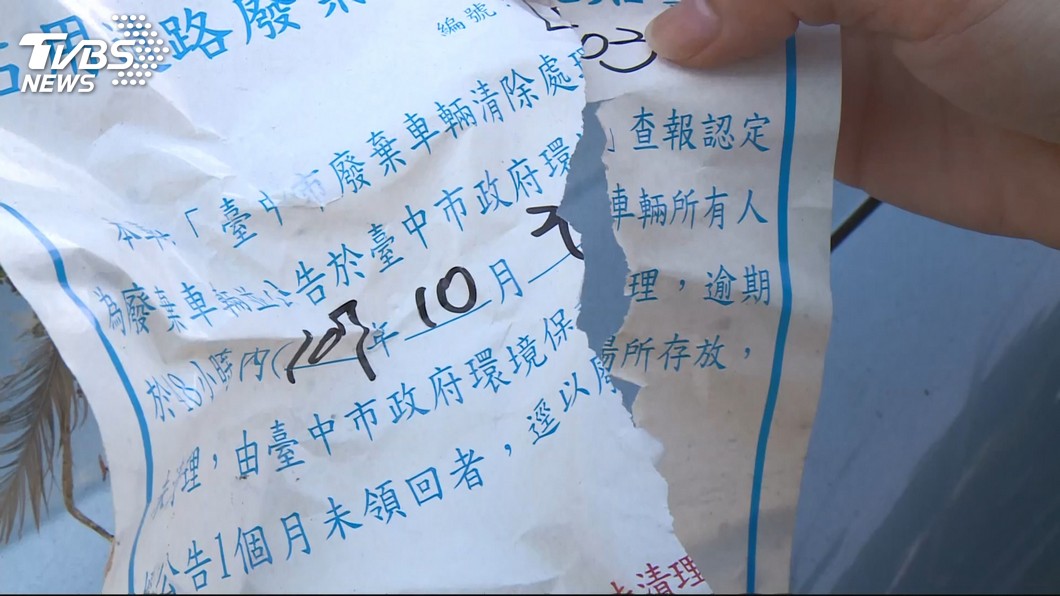 TVBS
NEWS
占用道路廢棄
編號
03
「臺中市廢棄車輛清除處理 查報認定
為廢棄車輛並公告於臺中市政府環 車輛所有人
於48小時內(107年10月 理，逾期
未清理，由臺中市政府環境保 場所存放，
公告1個月未領回者，逕以廢
未清理